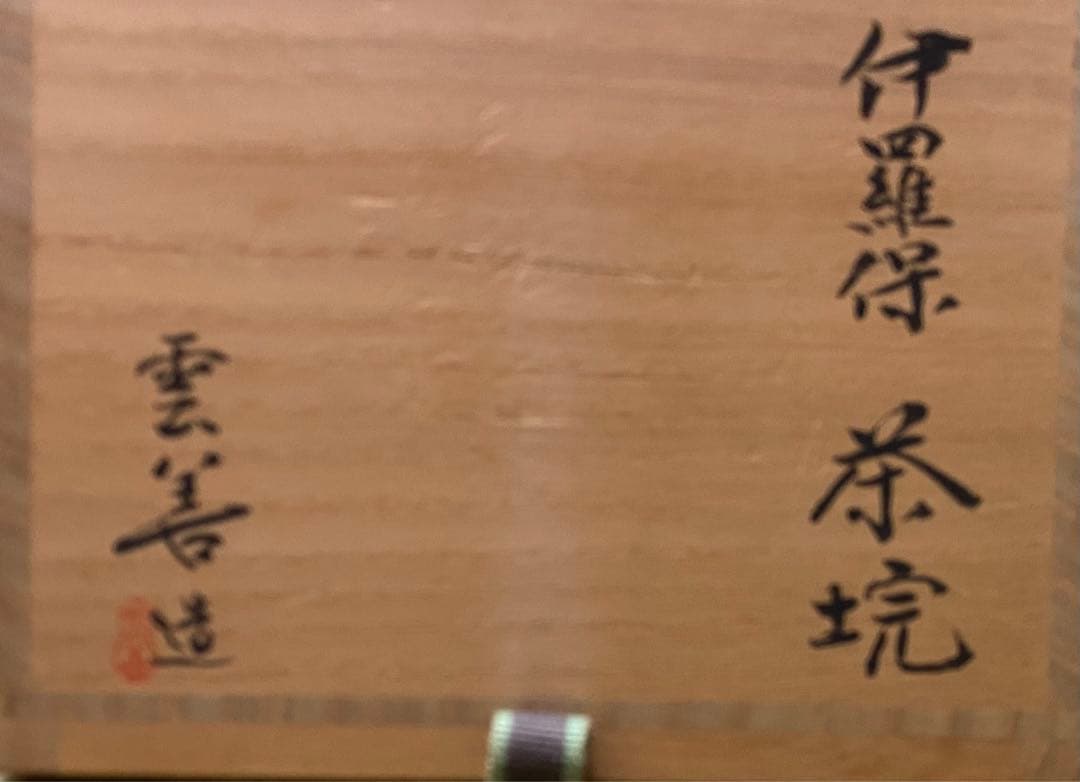 伊羅保 茶垸
雲善造